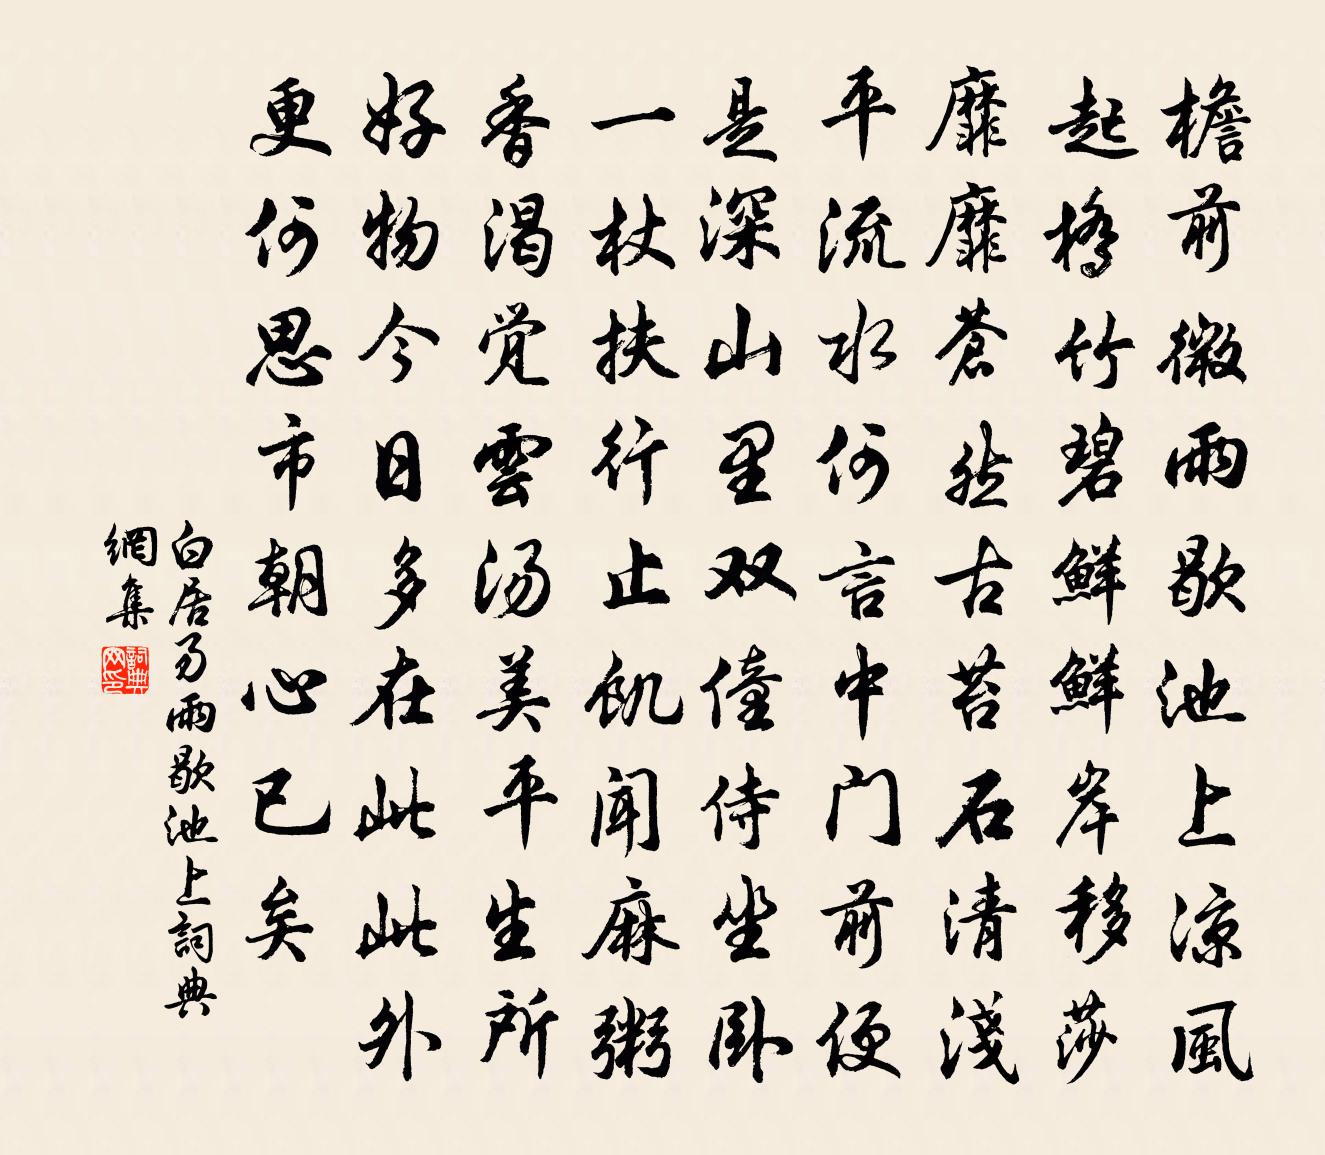 檐前微雨歇池上凉風
起橋竹碧鮮鮮岸移莎
靡靡蒼然古苔石清淺
平流水何言中门前便
是深山里双僮侍坐卧
一杖扶行止飢闻麻粥
香渴觉雲汤美平生所
好物今日多在此此外
更何思市朝心已矣
白居易雨歇池上詞典
網集
詞典网印